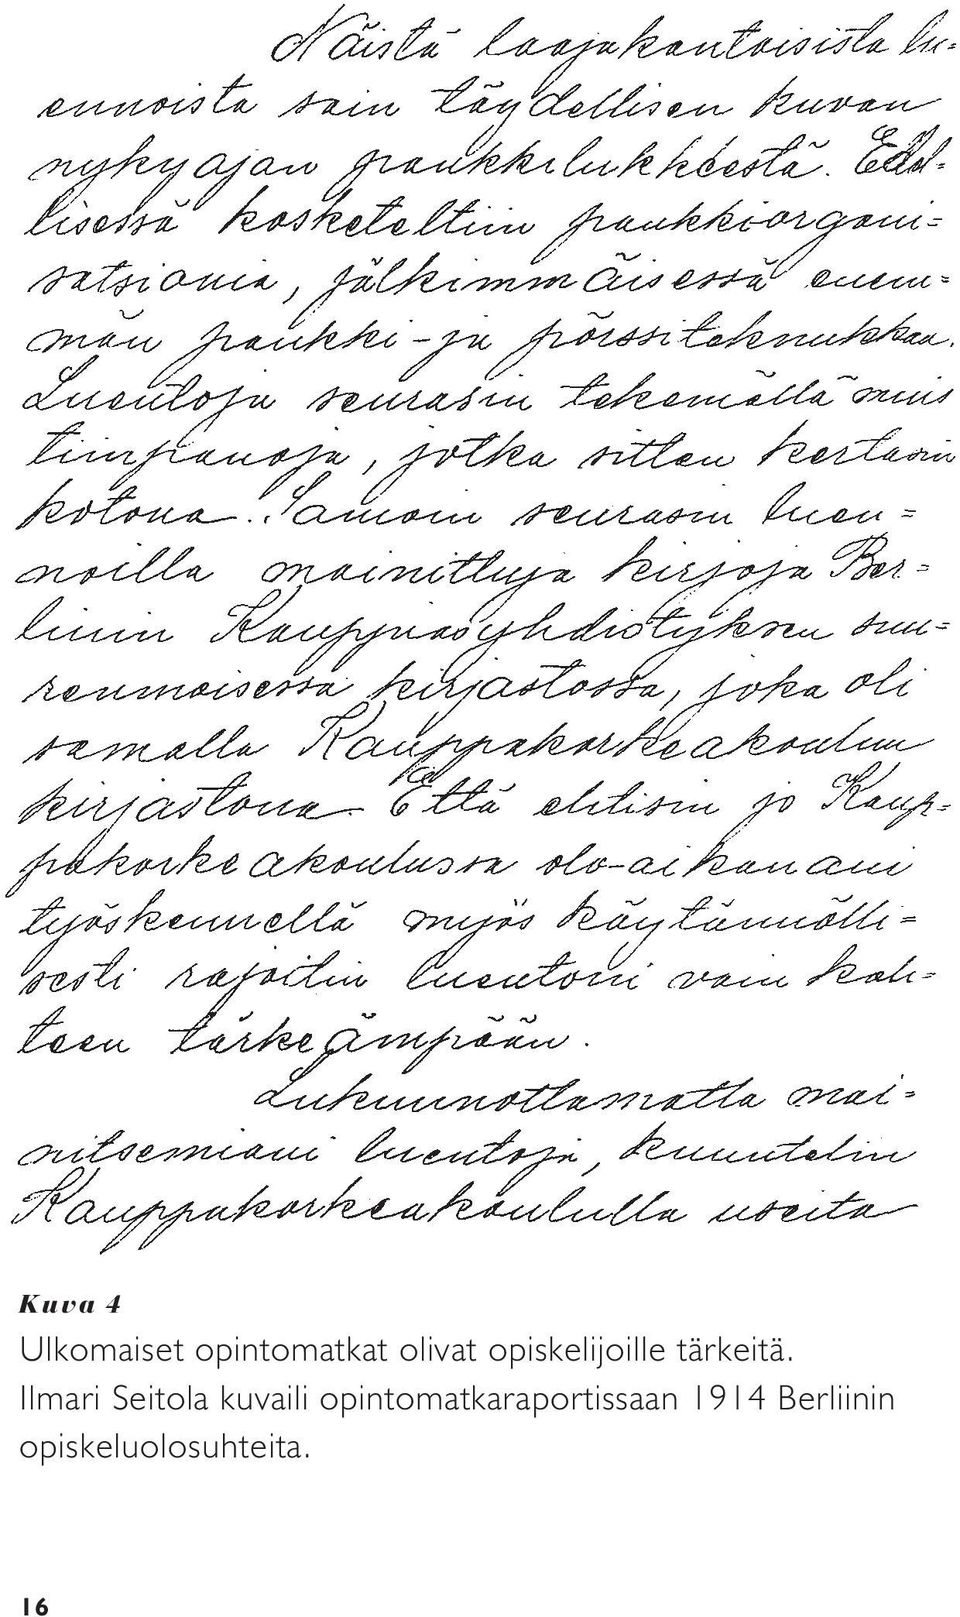 Näistä laajakantoisista lu=
ennoista sain täydellisen kuvan
nykyajan pankkiliikkeestä. Edel=
lisessä kosketeltiin pankkiorgani=
satsionia, jälkimmäisessä enem=
män pankki-ja pörssitekniikkaa.
Luentoja seurasin tekemällä muis
tiinpanoja, jotka sitten kertasin
kotona. Samoin seurasin luen=
noilla mainittuja kirjoja Ber=
liinin Kauppiasyhdistyksen suu=
renmoisessa kirjastossa, joka oli
samalla Kauppakorkeakoulun
kirjastona. Että ehtisin jo Kaup=
pakorkeakoulussa olo-aikanani
työskennellä myös käytännölli=
sesti rajoitin luentoni vain kah=
teen tärkeämpään.
Lukuunottamatta mai=
nitsemiani luentoja, kuuntelin
Kauppakorkeakoululla useita
Kuva 4
Ulkomaiset opintomatkat olivat opiskelijoille tärkeitä.
Ilmari Seitola kuvaili opintomatkaraportissaan 1914 Berliinin
opiskeluolosuhteita.
16